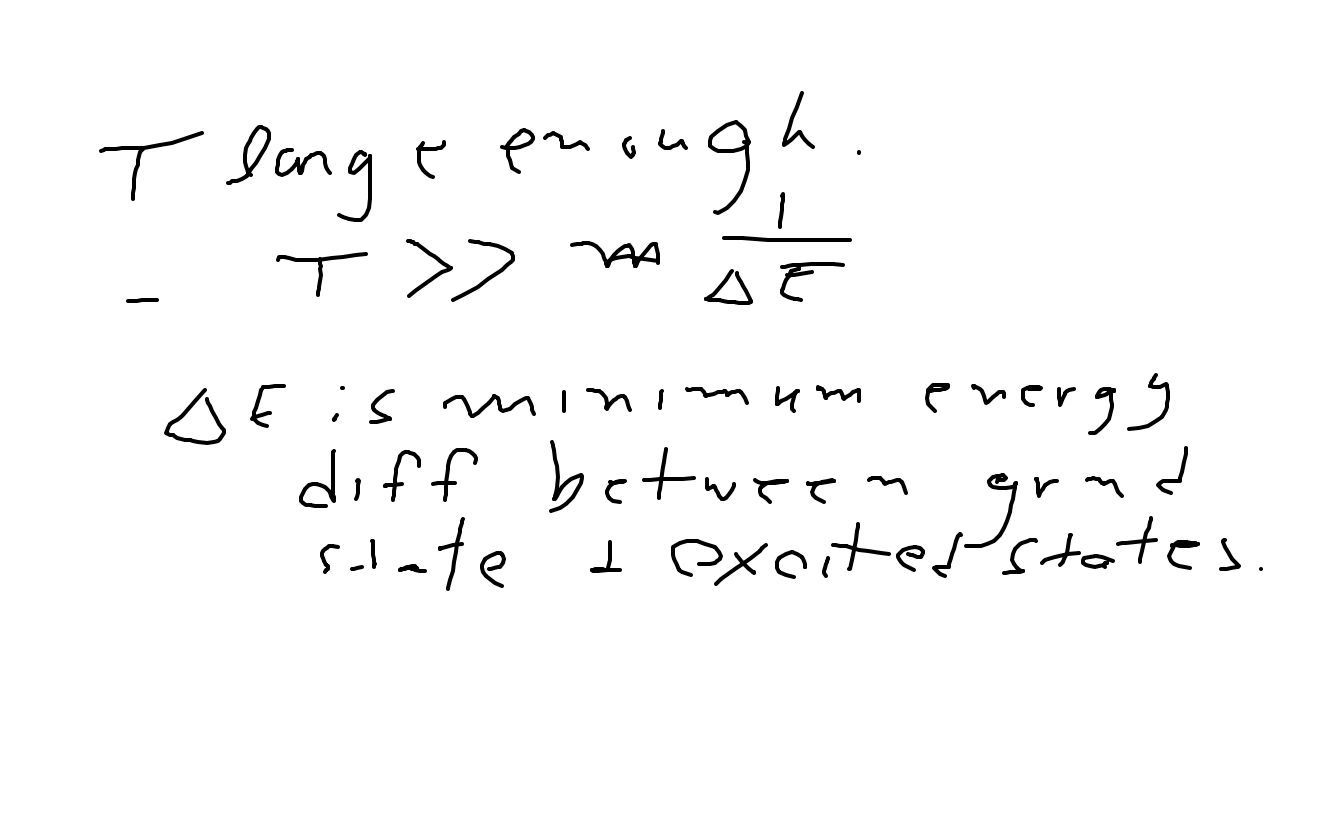 T large enough.
- T >> 1/ΔE
ΔE is minimum energy
diff between grnd
state & excited states.